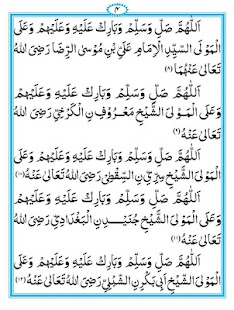 ١٢
اَللّٰهُمَّ صَلِّ وَسَلِّمْ وَبَارِكْ عَلَيْهِ وَعَلَيْهِمْ وَعَلَى
الْمَوْلَى السَّيِّدِ الْاِمَامِ عَلِيِّ بْنِ مُوْسَى الرِّضَا رَضِيَ اللهُ
تَعَالٰى عَنْهُمَا (٨)
اَللّٰهُمَّ صَلِّ وَسَلِّمْ وَبَارِكْ عَلَيْهِ وَعَلَيْهِمْ
وَعَلَى الْمَوْلَى الشَّيْخِ مَعْرُوْفِ نِ الْكَرْخِيِّ رَضِيَ اللهُ
تَعَالٰى عَنْهُ (٩)
اَللّٰهُمَّ صَلِّ وَسَلِّمْ وَبَارِكْ عَلَيْهِ وَعَلَيْهِمْ وَعَلَى
الْمَوْلَى الشَّيْخِ سِرِّيِّ نِ السَّقْطِيِّ رَضِيَ اللهُ تَعَالٰى عَنْهُ (١٠)
اَللّٰهُمَّ صَلِّ وَسَلِّمْ وَبَارِكْ عَلَيْهِ وَعَلَيْهِمْ
وَعَلَى الْمَوْلَى الشَّيْخِ جُنَيْدِ نِ الْبَغْدَادِيِّ رَضِيَ اللهُ
تَعَالٰى عَنْهُ (١١)
اَللّٰهُمَّ صَلِّ وَسَلِّمْ وَبَارِكْ عَلَيْهِ وَعَلَيْهِمْ وَعَلَى
الْمَوْلَى الشَّيْخِ اَبِيْ بَكْرِ نِ الشِّبْلِيِّ رَضِيَ اللهُ تَعَالٰى عَنْهُ (١٢)